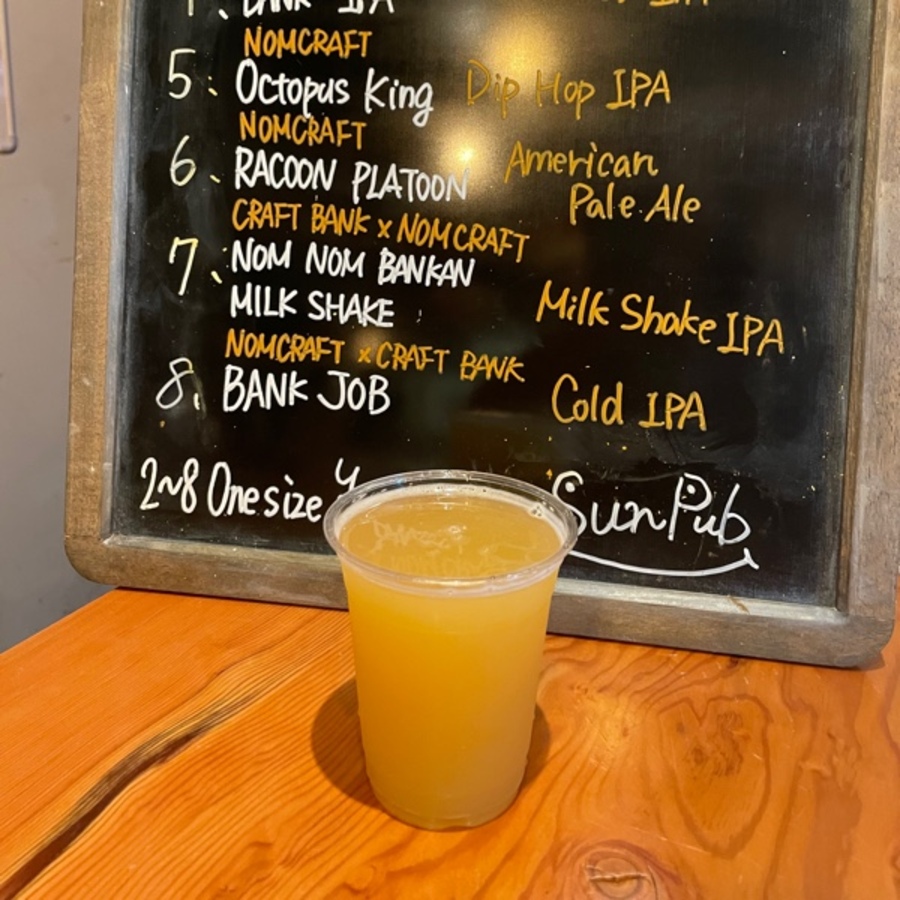 BANK IPA IPA
NOMCRAFT
5. Octopus King Dip Hop IPA
NOMCRAFT
6. RACOON PLATOON American
Pale Ale
CRAFT BANK x NOMCRAFT
7. NOM NOM BANKAN
MILK SHAKE Milk Shake IPA
NOMCRAFT x CRAFT BANK
8. BANK JOB Cold IPA
2~8 One size Sun Pub